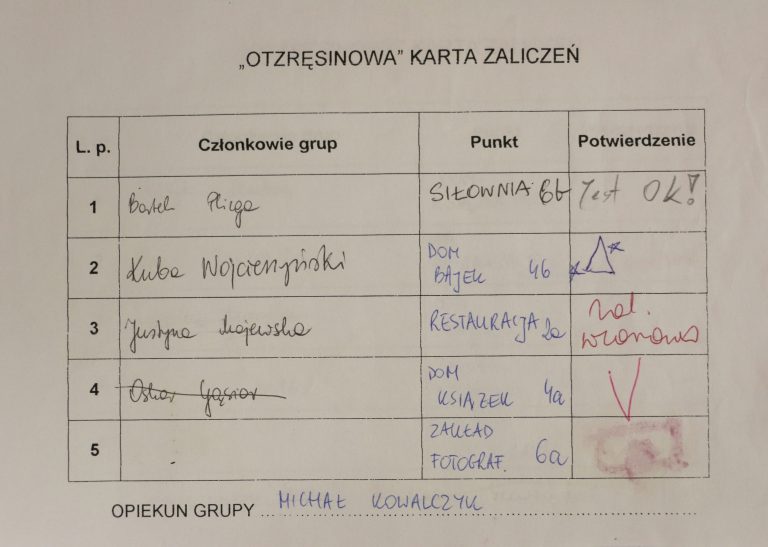 „OTZRĘSINOWA” KARTA ZALICZEŃ
L. p. Członkowie grup Punkt Potwierdzenie
1 Bartek Plicga SIŁOWNIA 6b Jest OK!
2 Kuba Wojcieszyński DOM BAJEK 4b
3 Justyna Majewska RESTAURACJA 2a zal. wronowa
4 Oskar Gąsior DOM KSIĄŻEK 4a
5 ZAKŁAD FOTOGRAF. 6a
OPIEKUN GRUPY MICHAŁ KOWALCZYK